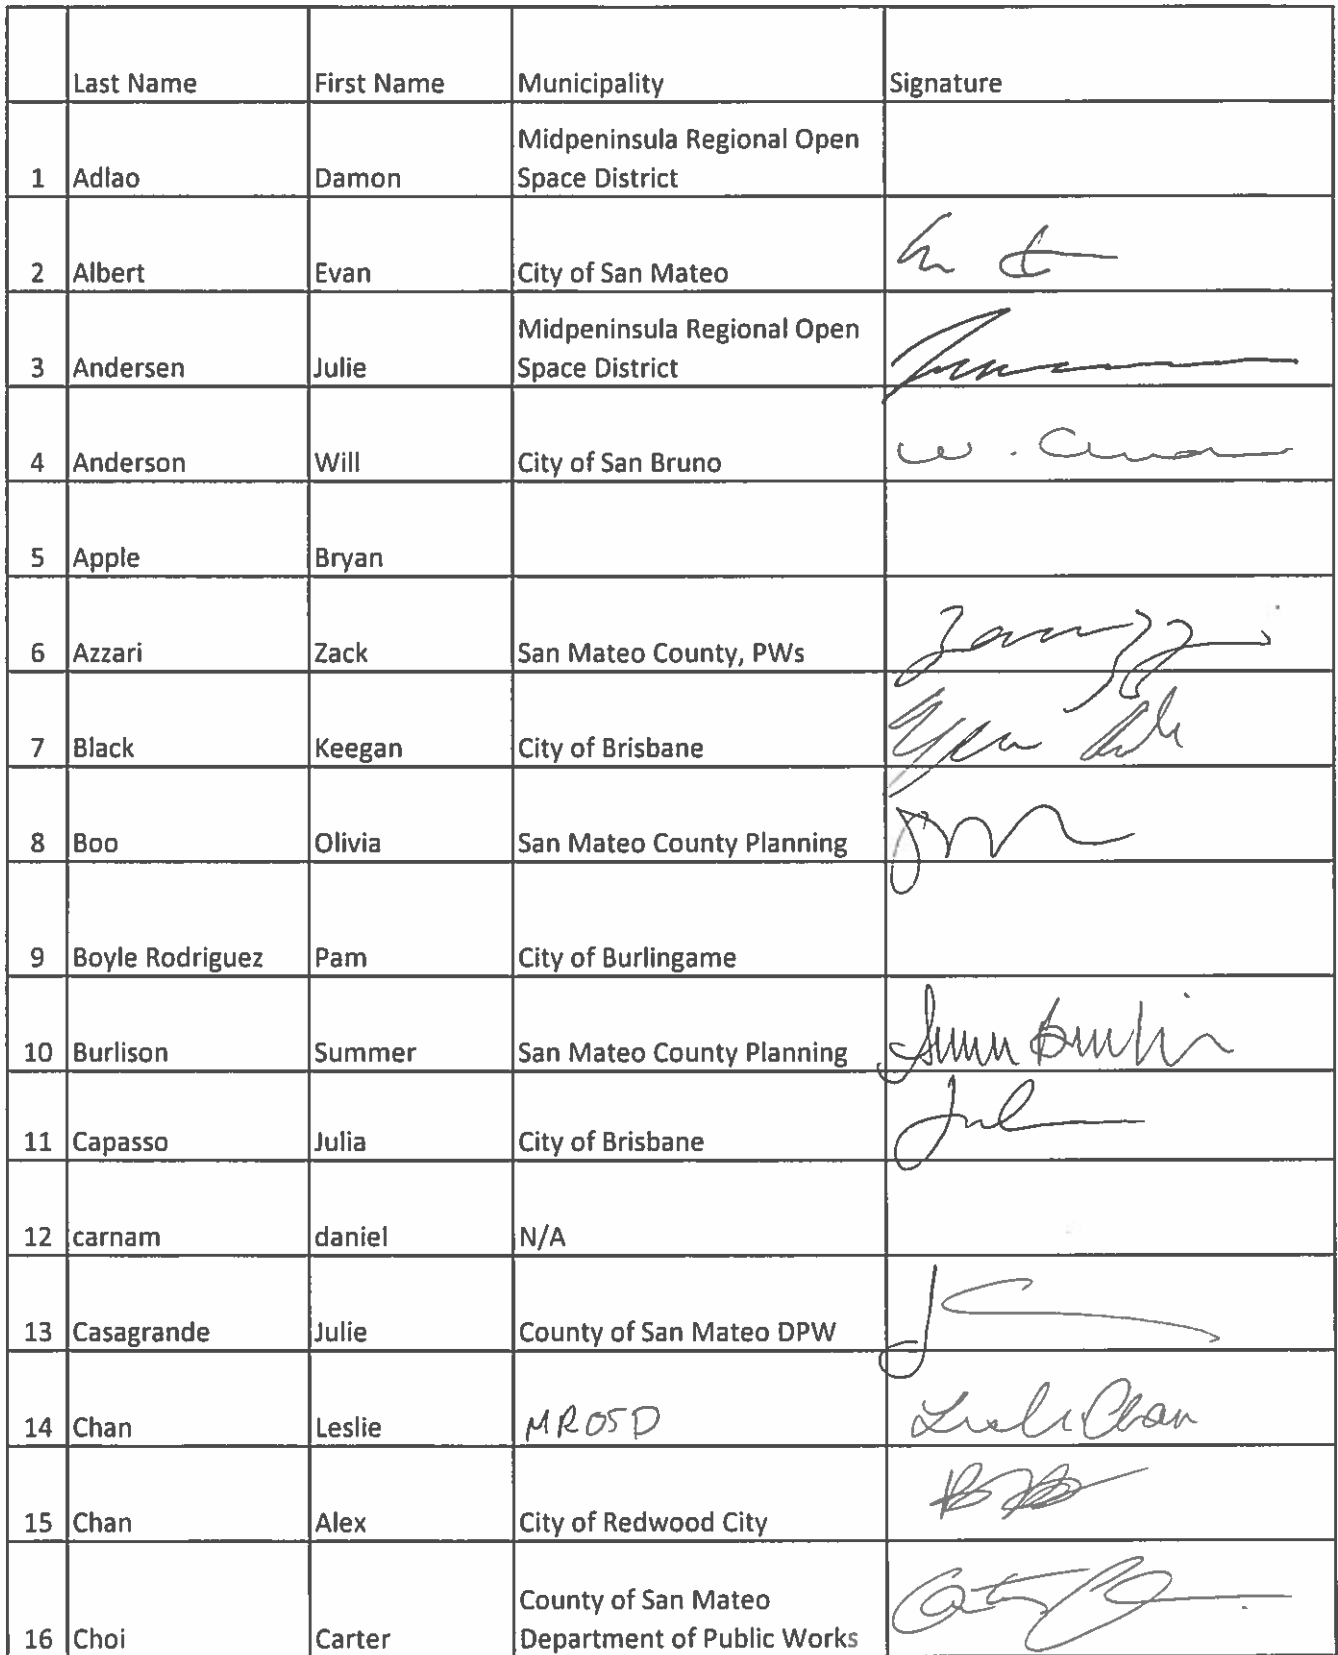 Last Name First Name Municipality Signature
1 Adlao Damon Midpeninsula Regional Open
Space District
2 Albert Evan City of San Mateo
3 Andersen Julie Midpeninsula Regional Open
Space District
4 Anderson Will City of San Bruno
5 Apple Bryan
6 Azzari Zack San Mateo County, PWs
7 Black Keegan City of Brisbane
8 Boo Olivia San Mateo County Planning
9 Boyle Rodriguez Pam City of Burlingame
10 Burlison Summer San Mateo County Planning
11 Capasso Julia City of Brisbane
12 carnam daniel N/A
13 Casagrande Julie County of San Mateo DPW
14 Chan Leslie MROSD Leslie Chan
15 Chan Alex City of Redwood City
16 Choi Carter County of San Mateo
Department of Public Works